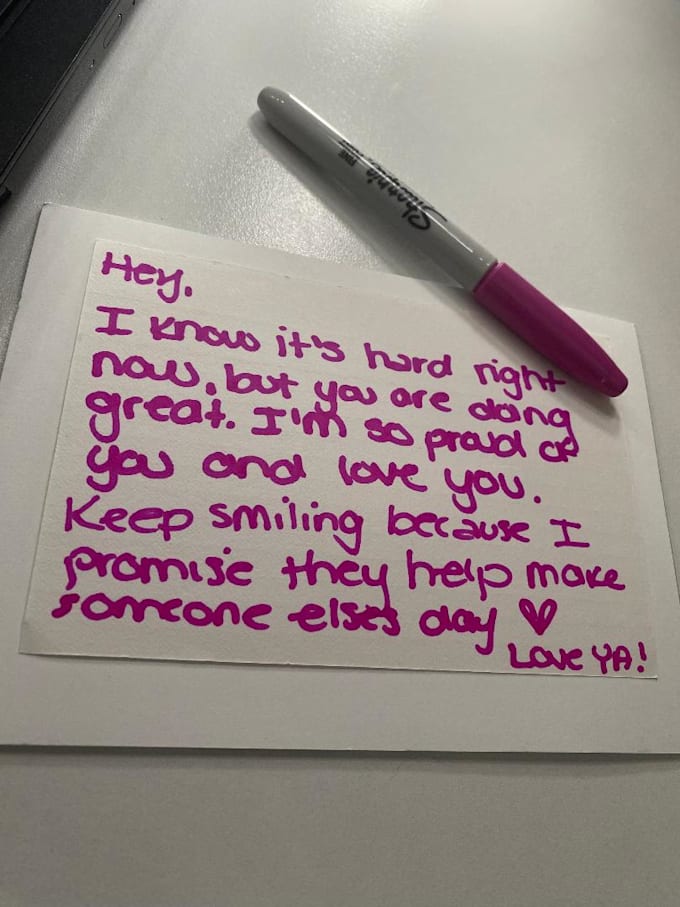 Sharpie
FINE
Hey,
I know it's hard right
now, but you are doing
great. I'm so proud of
you and love you.
Keep smiling because I
promise they help make
someone elses day ♡
LOVE YA!